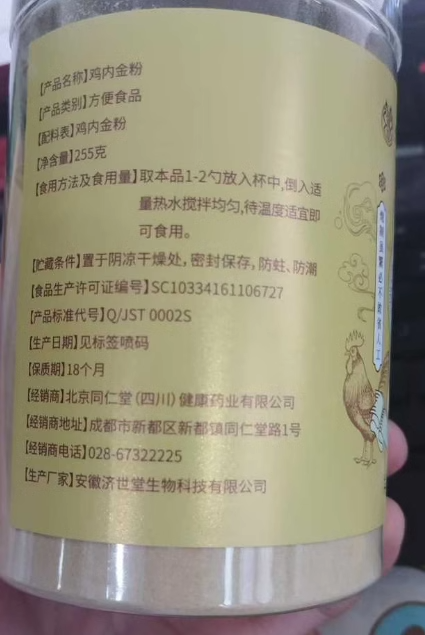 【产品名称】鸡内金粉
【产品类别】方便食品
【配料表】鸡内金粉
【净含量】255克
【食用方法及食用量】取本品1-2勺放入杯中,倒入适
量热水搅拌均匀,待温度适宜即
可食用。
【贮藏条件】置于阴凉干燥处,密封保存,防蛀、防潮
【食品生产许可证编号】SC10334161106727
【产品标准代号】Q/JST 0002S
【生产日期】见标签喷码
【保质期】18个月
【经销商】北京同仁堂(四川)健康药业有限公司
【经销商地址】成都市新都区新都镇同仁堂路1号
【经销商电话】028-67322225
【生产厂家】安徽济世堂生物科技有限公司
炮制虽繁必不敢省人工